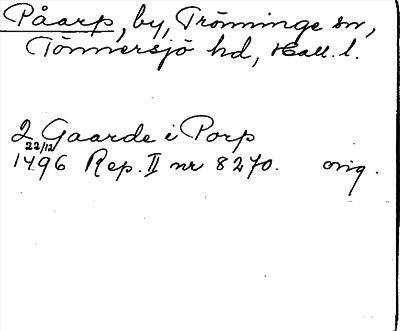 Påarp, by, Trönninge sn,
Tönnersjö hd, Hall. l.
2 Gaarde i Porp
22/12
1496 Rep. II nr 8270. orig.